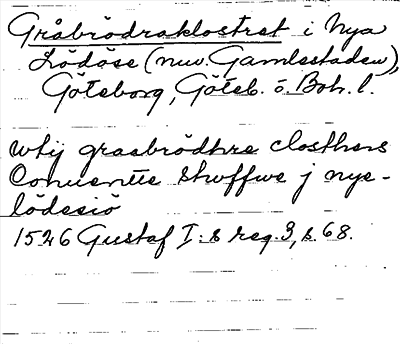 Gråbrödraklostret i Nya
Lödöse (nuv. Gamlestaden),
Göteborg, Göteb. o. Boh. l.
wtij graabrödhre closthers
Conuentte stuffwe j nye-
lödesiö
1526 Gustaf I:s reg. 3, s. 68.